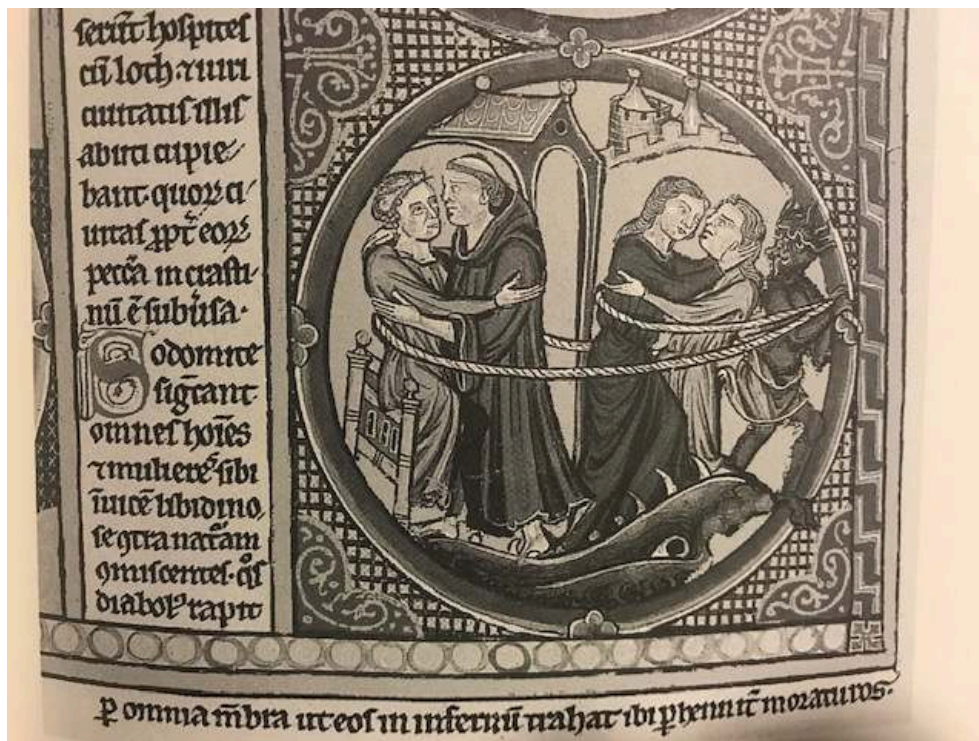 serūt hospites
cū loth ⁊ uiri
ciuitatis illis
abuti cupie⸗
bant quoꝝ ci⸗
uitas ꝓpt̄ eoꝝ
pecc̄a in crasti⸗
nū ē subūsa.
Sodomite
siḡcant
omnes hoīes
⁊ mulieres sibi
īuicē libidino⸗
se ꝯtra nat̄am
ꝯmiscentes. q̊s
diabolꝰ rapit
ꝑ omnia m̄bra ut eos in infernū trahat ibi ꝑhennit̄ moraturos.